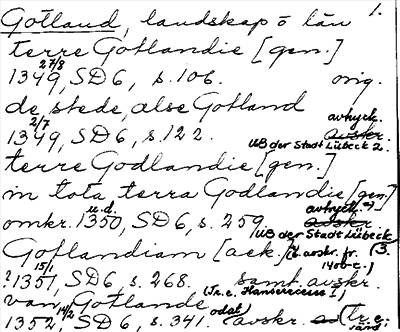 Gotland, landskap o län 1.
terre Gotlandie [gen.]
1349 27/8, SD 6, s. 106. orig.
de, stede, alse Gotland
1349 2/7, SD 6, s. 122. avtryck. avskr.
UB der Stadt Lübeck 2.
terre Godlandie [gen.]
in tota terra Godlandie [gen.]
omkr. 1350 u.d., SD 6, s. 259. avtryck avskr.
UB der Stadt Lübeck 3.
Gotlandiam [ack.] (avskr. fr. 1400-t.)
?1351 15/1, SD 6, s. 268. samt. avskr.
van, Gotlande (Tr. e. Hanserecesse I)
1352 odat., SD 6, s. 341. avskr. (tr. e.